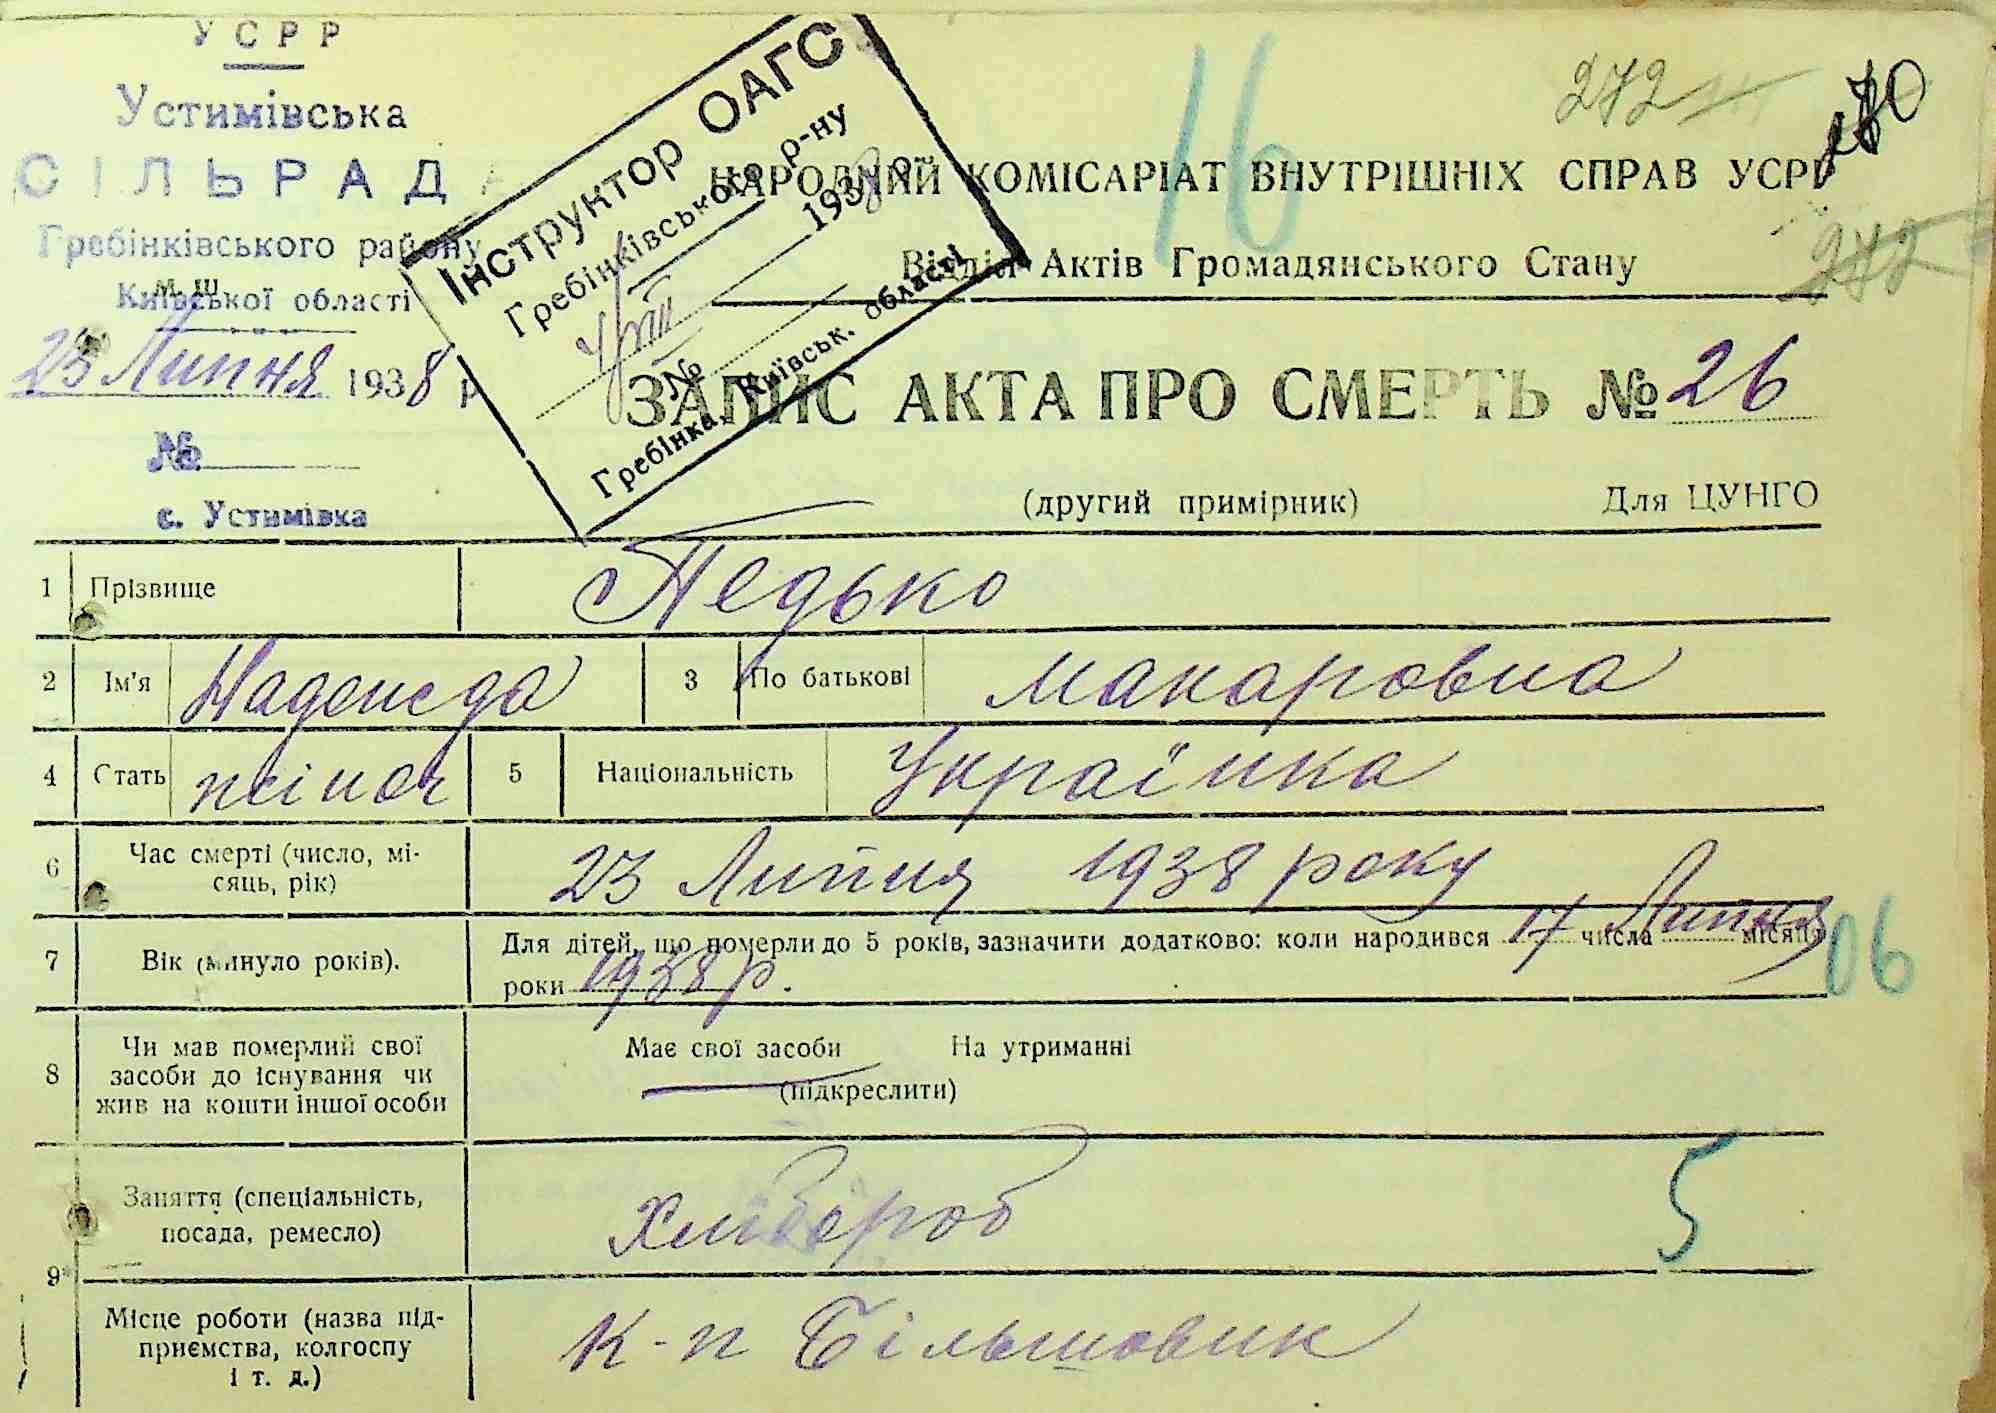 УСРР
Устимівська
СІЛЬРАДА
Гребінківського району
Київської області
23 Липня 1938 р
№
с. Устимівка
Інструктор ОАГС
Гребінківського р-ну
1938 р.
№
Гребінка, Київськ. області
16
272
270
272
НАРОДНИЙ КОМІСАРІАТ ВНУТРІШНІХ СПРАВ УСРР
Відділ Актів Громадянського Стану
ЗАПИС АКТА ПРО СМЕРТЬ № 26
(другий примірник) Для ЦУНГО
1 Прізвище Педько
2 Ім'я Надежда 3 По батькові Макаровна
4 Стать жіноч 5 Національність Українка
6 Час смерті (число, мі-
сяць, рік) 23 Липня 1938 року
7 Вік (минуло років). Для дітей, що померли до 5 років, зазначити додатково: коли народився 17 числа Липня місяця
роки 1938 р.
06
8 Чи мав померлий свої
засоби до існування чи
жив на кошти іншої особи
Має свої засоби На утриманні
(підкреслити)
9 Заняття (спеціальність,
посада, ремесло) Хлібороб 5
Місце роботи (назва під-
приємства, колгоспу
і т. д.) К-п Більшовик